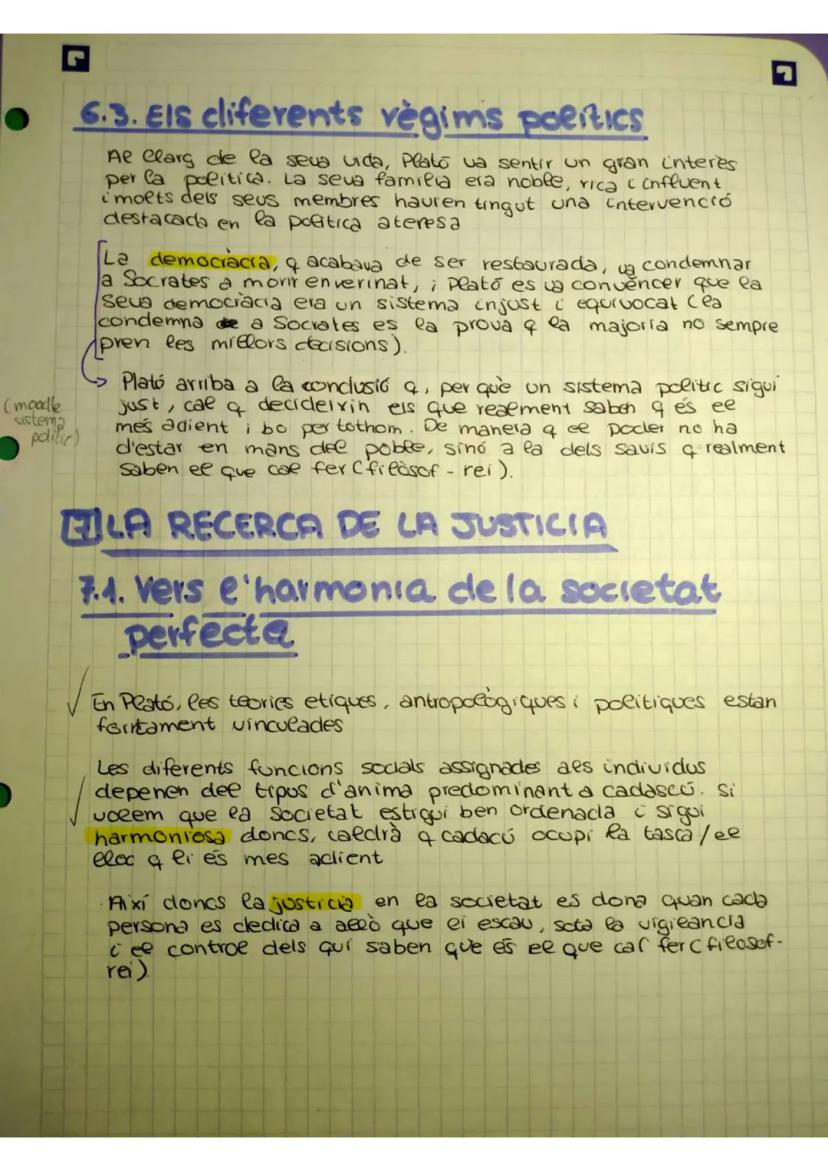 6.3. Els diferents règims polítics
Al llarg de la seva vida, Plató va sentir un gran interès
per la política. La seva família era noble, rica i influent
i molts dels seus membres havien tingut una intervenció
destacada en la política ateresa
La democràcia, q acabava de ser restaurada, va condemnar
a Socrates a morir enverinat, i Plató es va convèncer que la
seva democràcia era un sistema injust i equivocat (la
condemna de a Socrates es la prova q la majoria no sempre
pren les millors decisions).
Plató arriba a la conclusió q, per què un sistema polític sigui
just, cal q decideixin els que realment saben q és el
més adient i bo per tothom. De manera q el poder no ha
d'estar en mans del poble, sinó a la dels savis q realment
saben el que cal fer (filòsof - rei).
(modle
sistema
polític)
7 LA RECERCA DE LA JUSTICIA
7.1. Vers l'harmonia de la societat
perfecta
En Plató, les teories etiques, antropològiques i polítiques estan
fortament vinculades
Les diferents funcions socials assignades als individus
depenen del tipus d'anima predominant a cadascú. Si
volem que la societat estigui ben ordenada i sigui
harmoniosa doncs, caldrà q cadacú ocupi la tasca / el
lloc q li és mes adient
Així doncs la justicia en la societat es dona quan cada
persona es dedica a allò que li escau, sota la vigilancia
i el control dels qui saben que és el que cal fer (filosof-
rei)